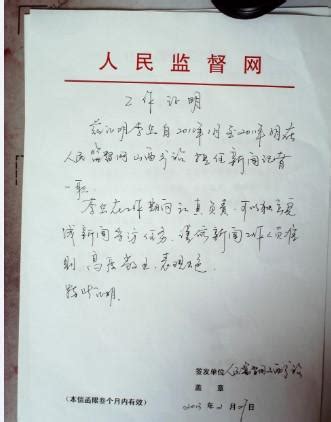 人民监督网
工作证明
兹证明李岳自2010年1月至2011年8月在
人民监督网山西专站担任新闻记者
一职。
李岳在工作期间认真负责,可以独立完
成新闻采访任务,谨依新闻工作人员准
则,爱岗敬业,表现不
特此证明。
签发单位:人民监督网山西专站
盖 章
(本信函限叁个月内有效)
2013 年 2 月 27 日